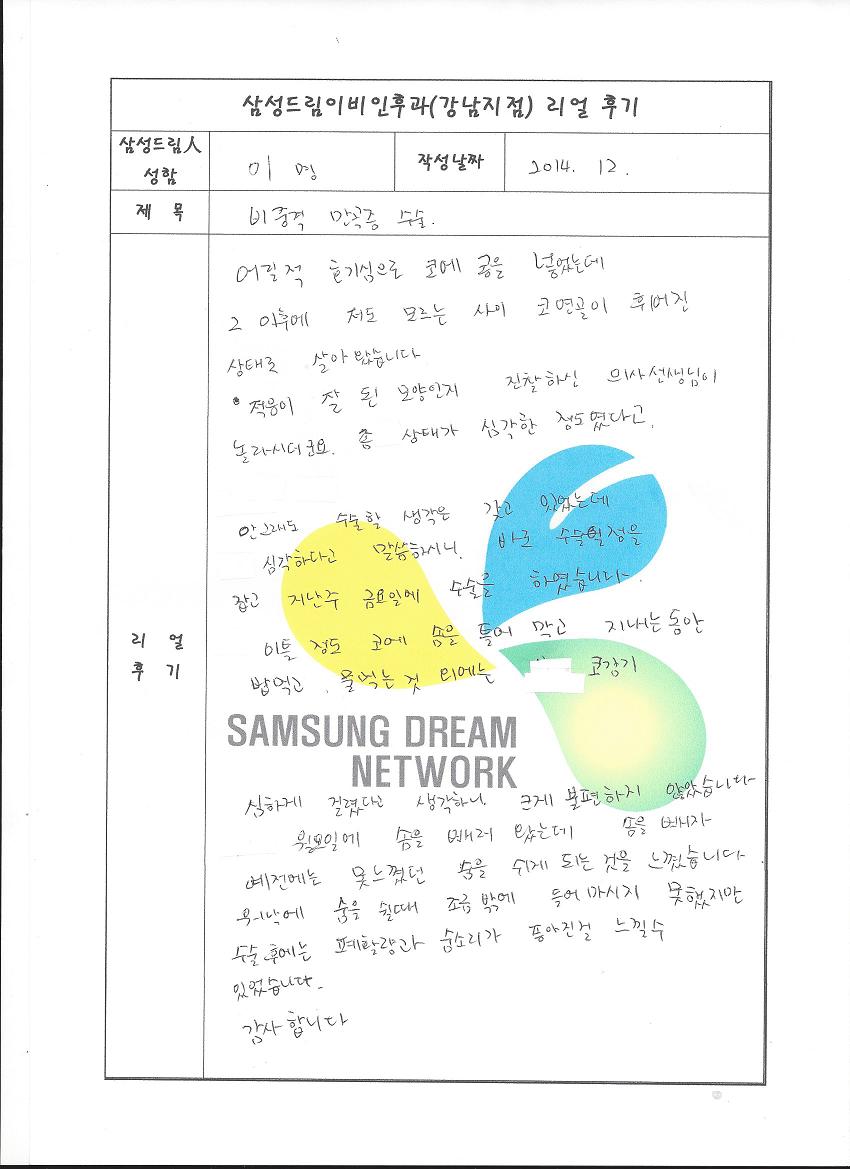 삼성드림이비인후과(강남지점) 리얼 후기
삼성드림人
성함
이 명
작성날짜
2014. 12.
제 목
비중격 만곡증 수술.
어릴적 호기심으로 코에 콩을 넣었는데
그 이후에 저도 모르는 사이 코연골이 휘어진
상태로 살아왔습니다
적응이 잘 된 모양인지 진찰하신 의사선생님이
놀라시더군요. 좀 상태가 심각한 정도였다고.
안그래도 수술할 생각은 갖고 있었는데
심각하다고 말씀하시니. 바로 수술일정을
잡고 지난주 금요일에 수술을 하였습니다.
이틀 정도 코에 솜을 틀어 막고 지내는동안
밥먹고, 물먹는것 외에는 코감기
리 얼
후 기
SAMSUNG DREAM
NETWORK
심하게 걸렸다고 생각하니. 크게 불편하지 않았습니다
월요일에 솜을 빼러 왔는데 솜을 빼자
예전에는 못느꼈던 숨을 쉬게 되는 것을 느꼈습니다
숨을 쉴때 조금 밖에 들어마시지 못했지만
수술후에는 폐활량과 숨소리가 좋아진걸 느낄수
있었습니다.
감사합니다